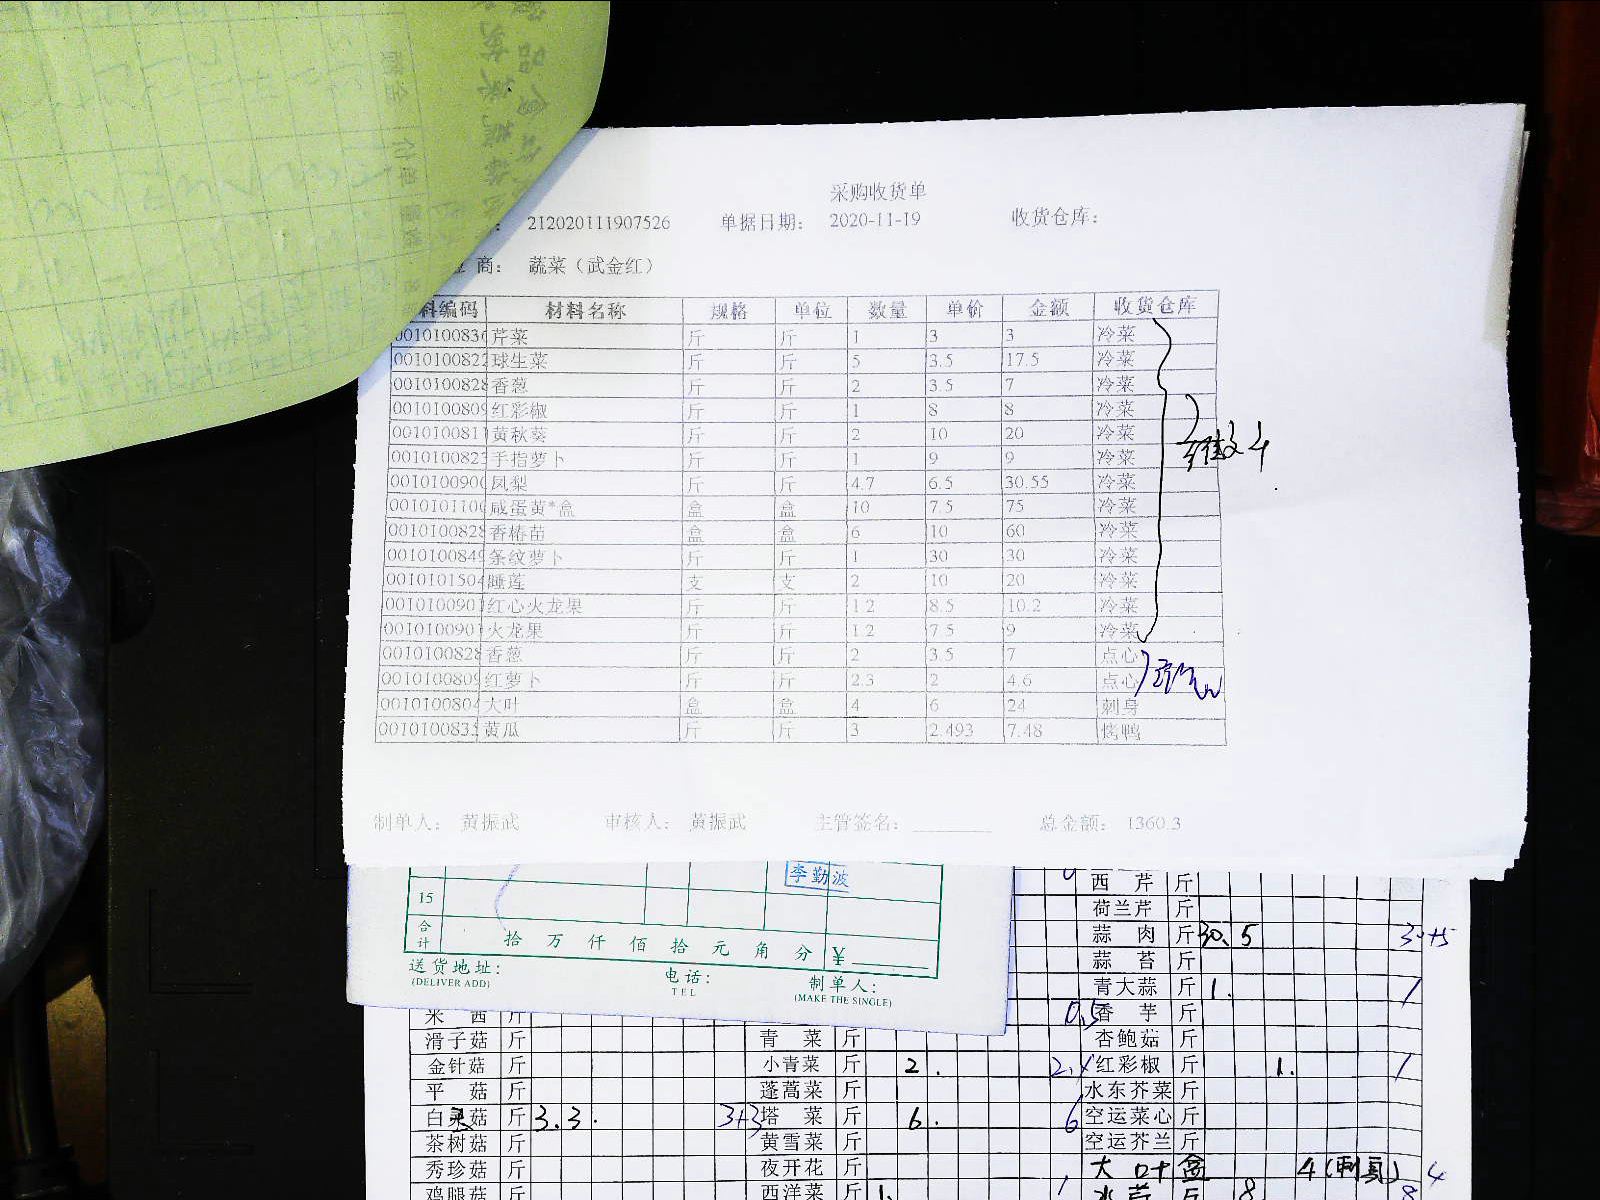 采购收货单
212020111907526 单据日期: 2020-11-19 收货仓库:
商: 蔬菜（武金红）
料编码 材料名称 规格 单位 数量 单价 金额 收货仓库
001010083 芹菜 斤 斤 1 3 3 冷菜
001010082 球生菜 斤 斤 5 3.5 17.5 冷菜
001010082 香葱 斤 斤 2 3.5 7 冷菜
001010080 红彩椒 斤 斤 1 8 8 冷菜
001010081 黄秋葵 斤 斤 2 10 20 冷菜
001010082 手指萝卜 斤 斤 1 9 9 冷菜
001010090 凤梨 斤 斤 4.7 6.5 30.55 冷菜
001010110 咸蛋黄*盒 盒 盒 10 7.5 75 冷菜
001010082 香椿苗 盒 盒 6 10 60 冷菜
001010084 条纹萝卜 斤 斤 1 30 30 冷菜
001010150 睡莲 支 支 2 10 20 冷菜
001010090 红心火龙果 斤 斤 1.2 8.5 10.2 冷菜
001010090 火龙果 斤 斤 1.2 7.5 9 冷菜
001010082 香葱 斤 斤 2 3.5 7 点心
001010080 红萝卜 斤 斤 2.3 2 4.6 点心
001010080 大叶 盒 盒 4 6 24 刺身
001010083 黄瓜 斤 斤 3 2.493 7.48 烤鸭
制单人: 黄振武 审核人: 黄振武 主管签名: ________ 总金额: 1360.3
李勤波
15
合计 拾 万 仟 佰 拾 元 角 分 ¥
送货地址: 电话: 制单人:
(DELIVER ADD) TEL (MAKE THE SINGLE)
西芹 斤
荷兰芹 斤
蒜肉 斤 30. 5 30+5
蒜苔 斤
青大蒜 斤 1. 1
米西 斤 0.5 香芋 斤
滑子菇 斤 青菜 斤 杏鲍菇 斤
金针菇 斤 小青菜 斤 2. 红彩椒 斤 1. 1
平菇 斤 蓬蒿菜 斤 水东芥菜 斤
白灵菇 斤 3.3. 3+3 塔菜 斤 6. 6 空运菜心 斤
茶树菇 斤 黄雪菜 斤 空运芥兰 斤
秀珍菇 斤 夜开花 斤 大叶 盒 4(刺身) 4
鸡腿菇 斤 西洋菜 斤 1. 1 8 8